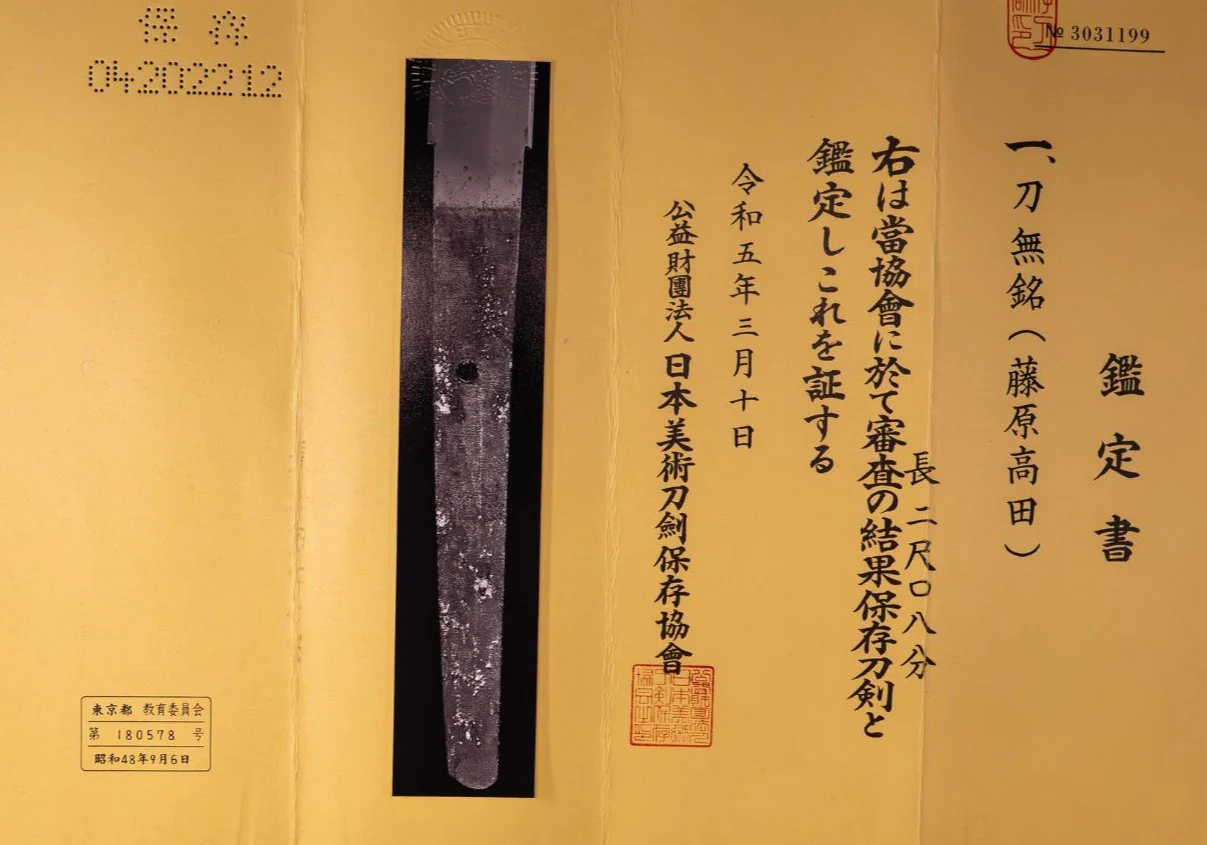 № 3031199
鑑定書
一、刀 無銘(藤原高田)
長 二尺〇八分
右は當協會に於て審査の結果保存刀剣と
鑑定しこれを証する
令和五年三月十日
公益財團法人 日本美術刀劍保存協會
保存
04202212
東京都 教育委員会
第 180578 号
昭和48年9月6日